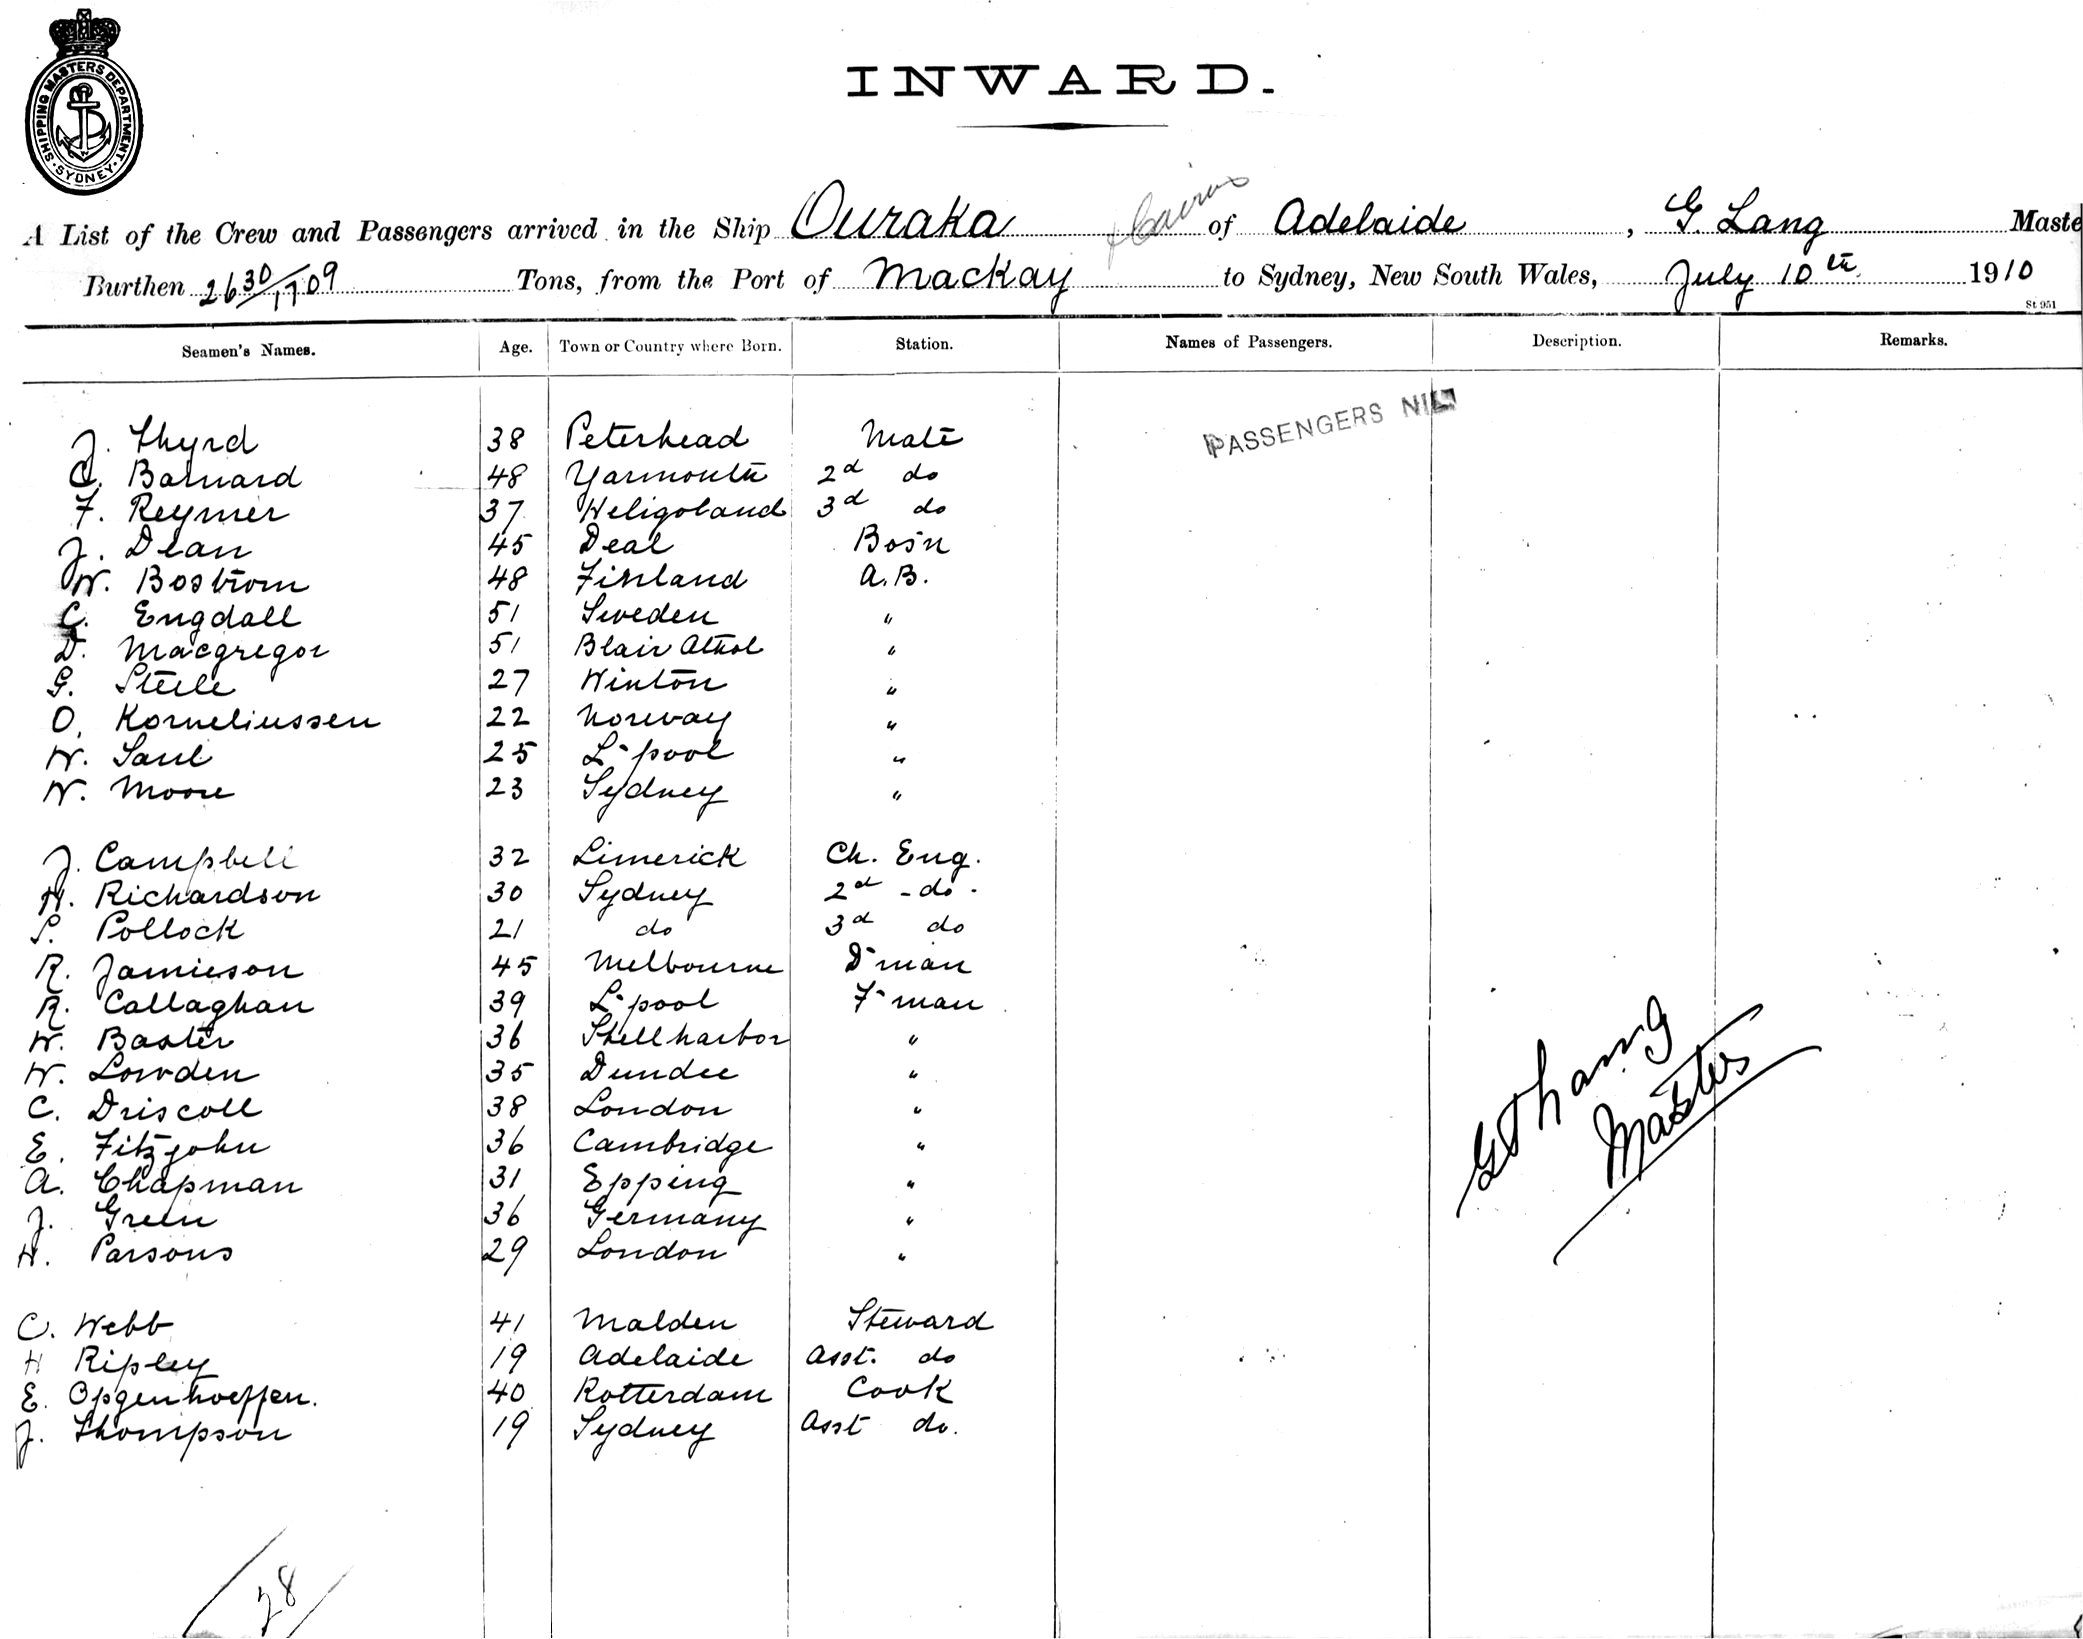 SHIPPING MASTERS DEPARTMENT
· SYDNEY ·
INWARD.
A List of the Crew and Passengers arrived in the Ship Ouraka & Cairns of Adelaide, G. Lang Maste
Burthen 2630/1709 Tons, from the Port of Mackay to Sydney, New South Wales, July 10th 1910
St 951
Seamen's Names. Age. Town or Country where Born. Station. Names of Passengers. Description. Remarks.
PASSENGERS NIL
J. Thyrd 38 Peterhead Mate
C. Barnard 48 Yarmouth 2d do
F. Reymer 37 Heligoland 3d do
J. Dean 45 Deal Bos'n
W. Bostrom 48 Finland A.B.
C. Engdall 51 Sweden "
D. Macgregor 51 Blair Athol "
G. Steele 27 Winton "
O. Korneliussen 22 Norway "
W. Saul 25 L-pool "
W. Moore 23 Sydney "
J. Campbell 32 Limerick Ch. Eng.
H. Richardson 30 Sydney 2d - do -
S. Pollock 21 do 3d do
R. Jamieson 45 Melbourne D-man
R. Callaghan 39 L-pool F-man
W. Baxter 36 Shellharbor "
W. Lowden 35 Dundee "
C. Driscoll 38 London "
E. Fitzjohn 36 Cambridge "
A. Chapman 31 Epping "
J. Green 36 Germany "
H. Parsons 29 London "
Master
C. Webb 41 Malden Steward
H Ripley 19 Adelaide Asst. do
E. Opgenhoeffen. 40 Rotterdam Cook
J. Thompson 19 Sydney Asst do.
28